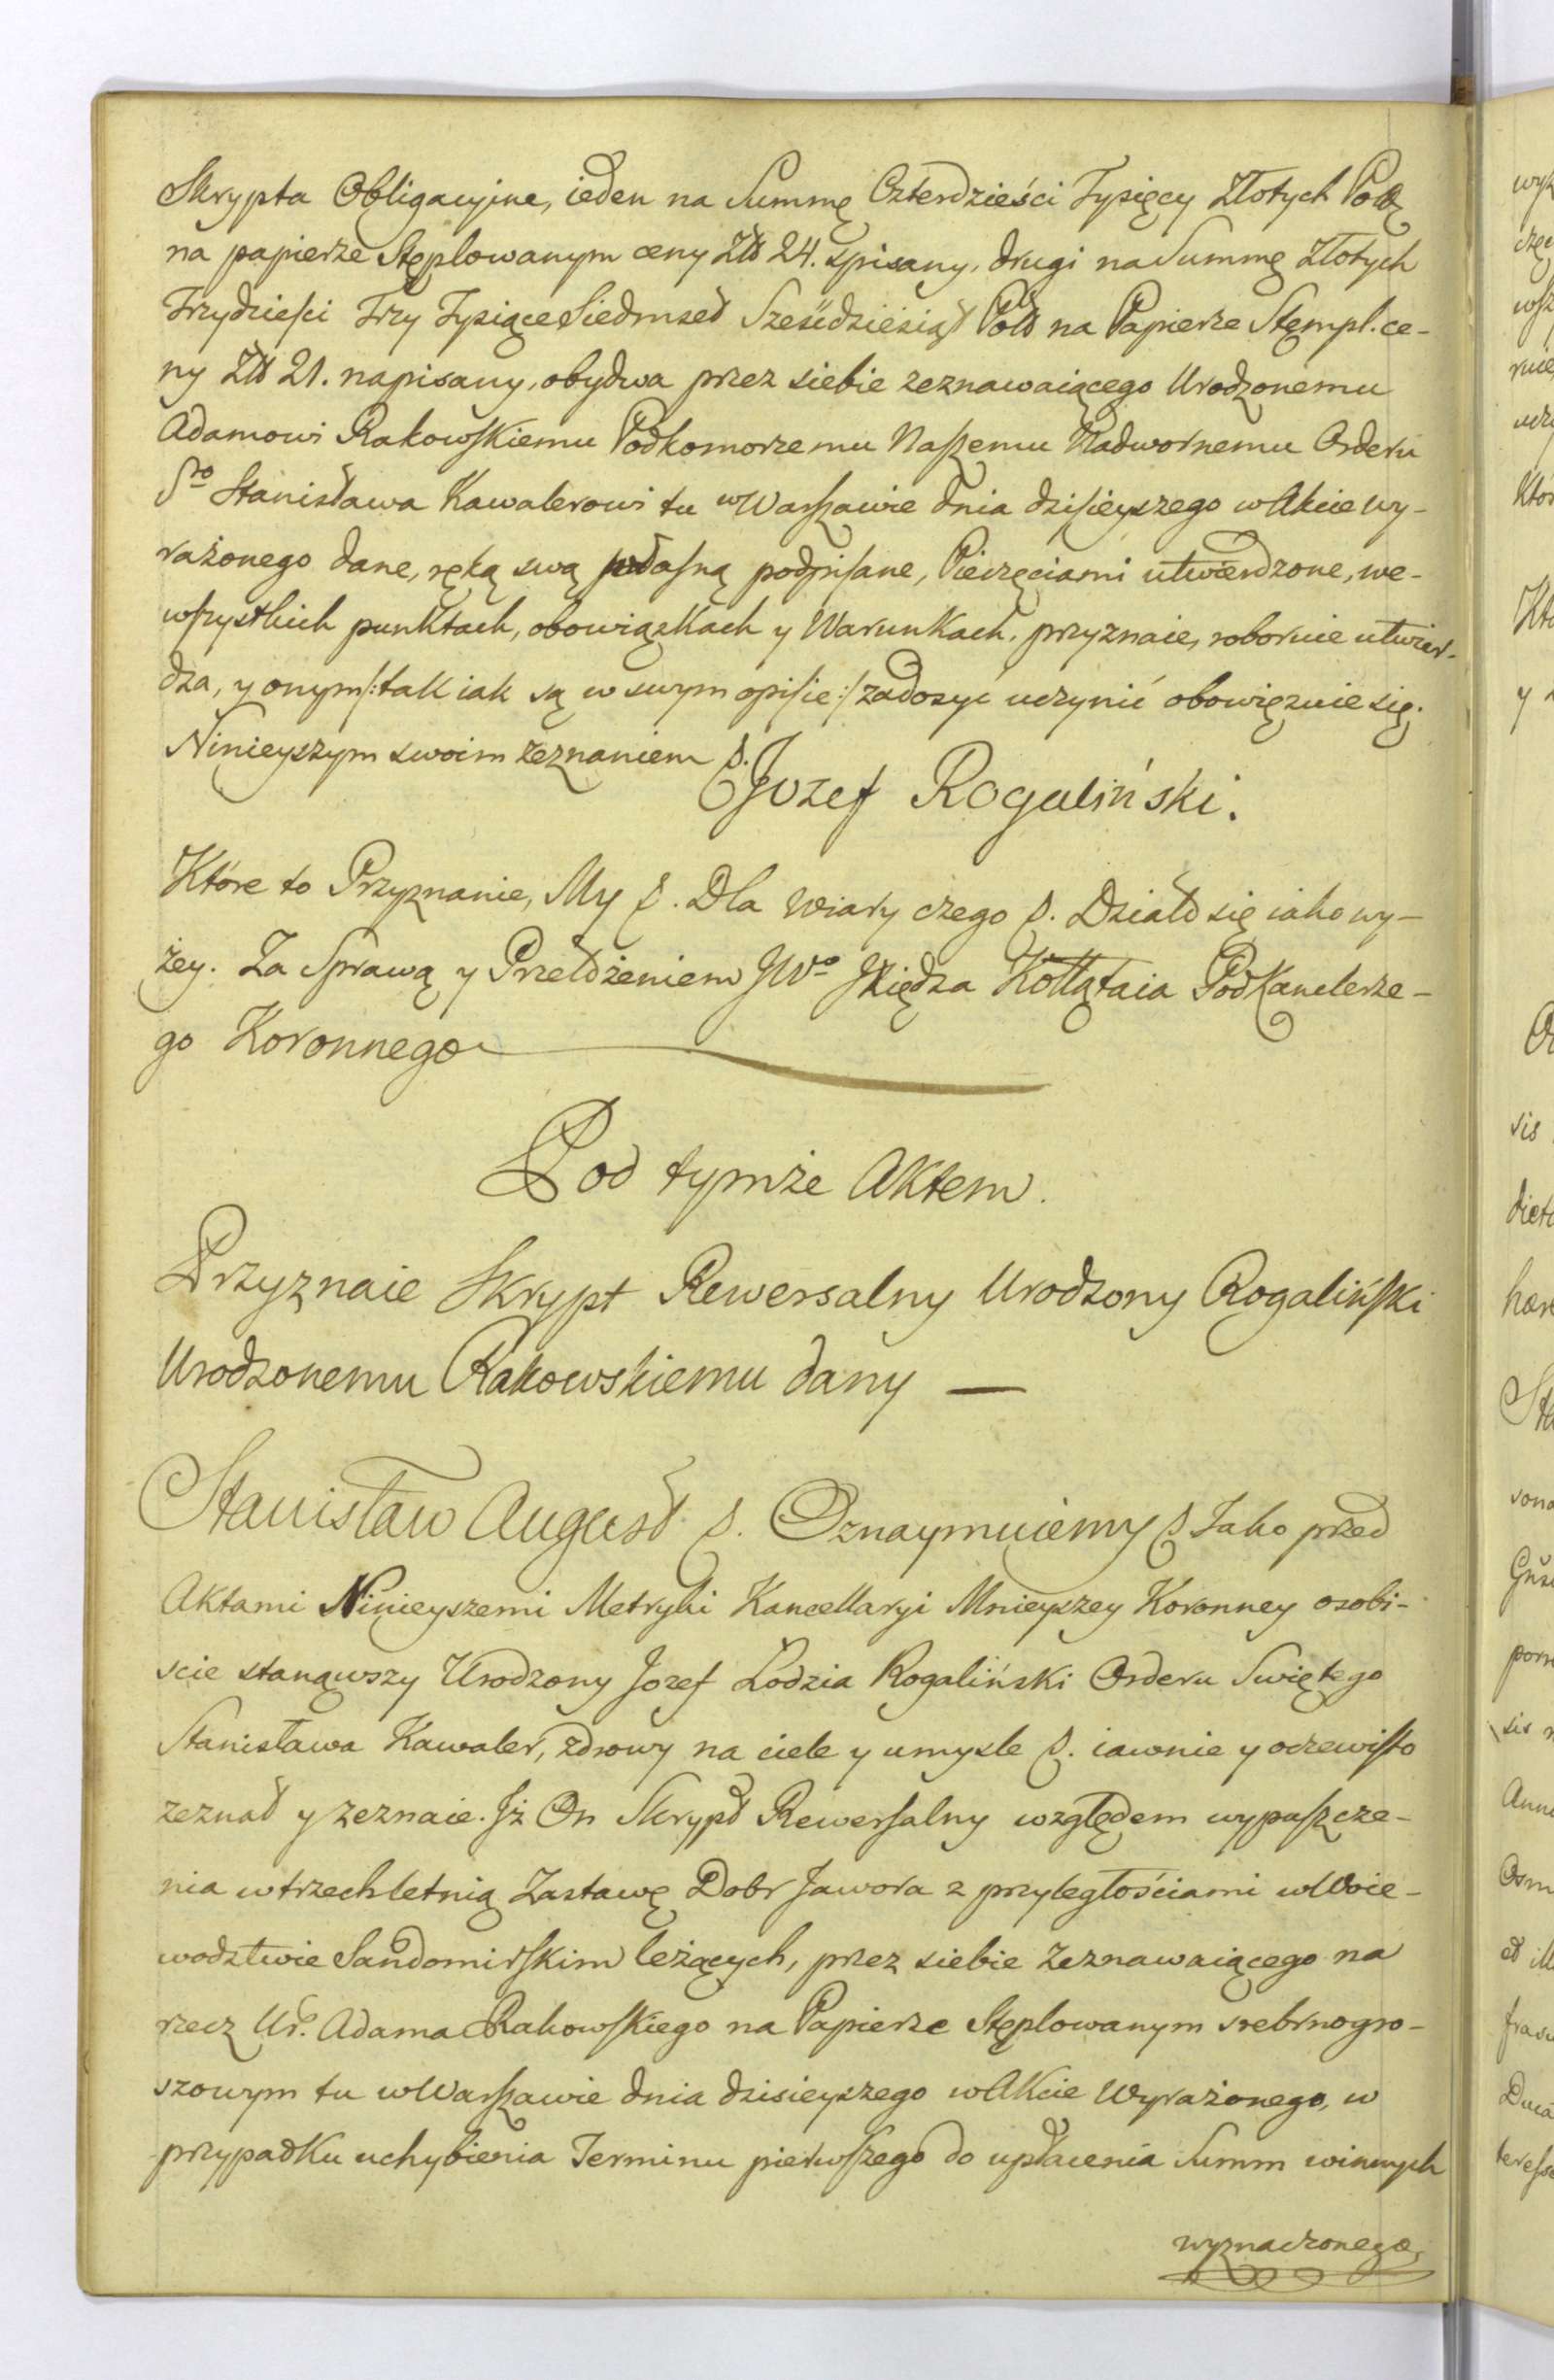 Skrypta Obligacyine, ieden na Summę Czterdzieści Tysięcy Złotych Pols
na papierze Stęplowanym ceny Złł 24. spisany, drugi na Summę Złotych
Trzydzieści Trzy Tysiące Siedmset Sześćdziesiąt Pols na Papierze Stęmpl. ce-
ny Złł 21. napisany, obydwa przez siebie zeznawaiącego Urodzonemu
Adamowi Rakowskiemu Podkomorzemu Naszemu Nadwornemu Orderu
Sgo Stanisława Kawalerowi tu w Warszawie dnia dzisieyszego w Akcie wy-
rażonego dane, ręką swą własną podpisane, Pieczęciami utwierdzone, we-
wszystkich punktach, obowiązkach y Warunkach, przyznaie, roboruie utwier-
dza, y onym /: tak iak są w swym opisie :/ zadosyć uczynić obowięzuie się.
Ninieyszym swoim zeznaniem
Jozef Rogaliński.
Które to Przyznanie, My Dla wiary czego Działo się iako wy-
żey. Za Sprawą y Przełożeniem JWo Xiędza Kołłątaia Podkanclerze-
go Koronnego
Pod tymże Aktem.
Przyznaie Skrypt Rewersalny Urodzony Rogaliński
Urodzonemu Rakowskiemu dany —
Stanisław August Oznaymuiemy Iako przed
Aktami Ninieyszemi Metryki Kancellaryi Mnieyszey Koronney osobi-
scie stanąwszy Urodzony Jozef Łodzia Rogaliński Orderu Swiętego
Stanisława Kawaler, zdrowy na ciele y umysle iawnie y oczewisto
zeznał y zeznaie. Iż On Skrypt Rewersalny względem wypuszcze-
nia w trzechletnią Zastawę Dobr Jawora z przyległościami w Woie-
wodztwie Sandomirskim leżących, przez siebie Zeznawaiącego na
rzecz Ur. Adama Rakowskiego na Papierze Stęplowanym srebrnogro-
szowym tu w Warszawie dnia dzisieyszego w Akcie Wyrażonego, w
przypadku uchybienia Terminu pierwszego do upłacenia Summ winnych
wyznaczonego